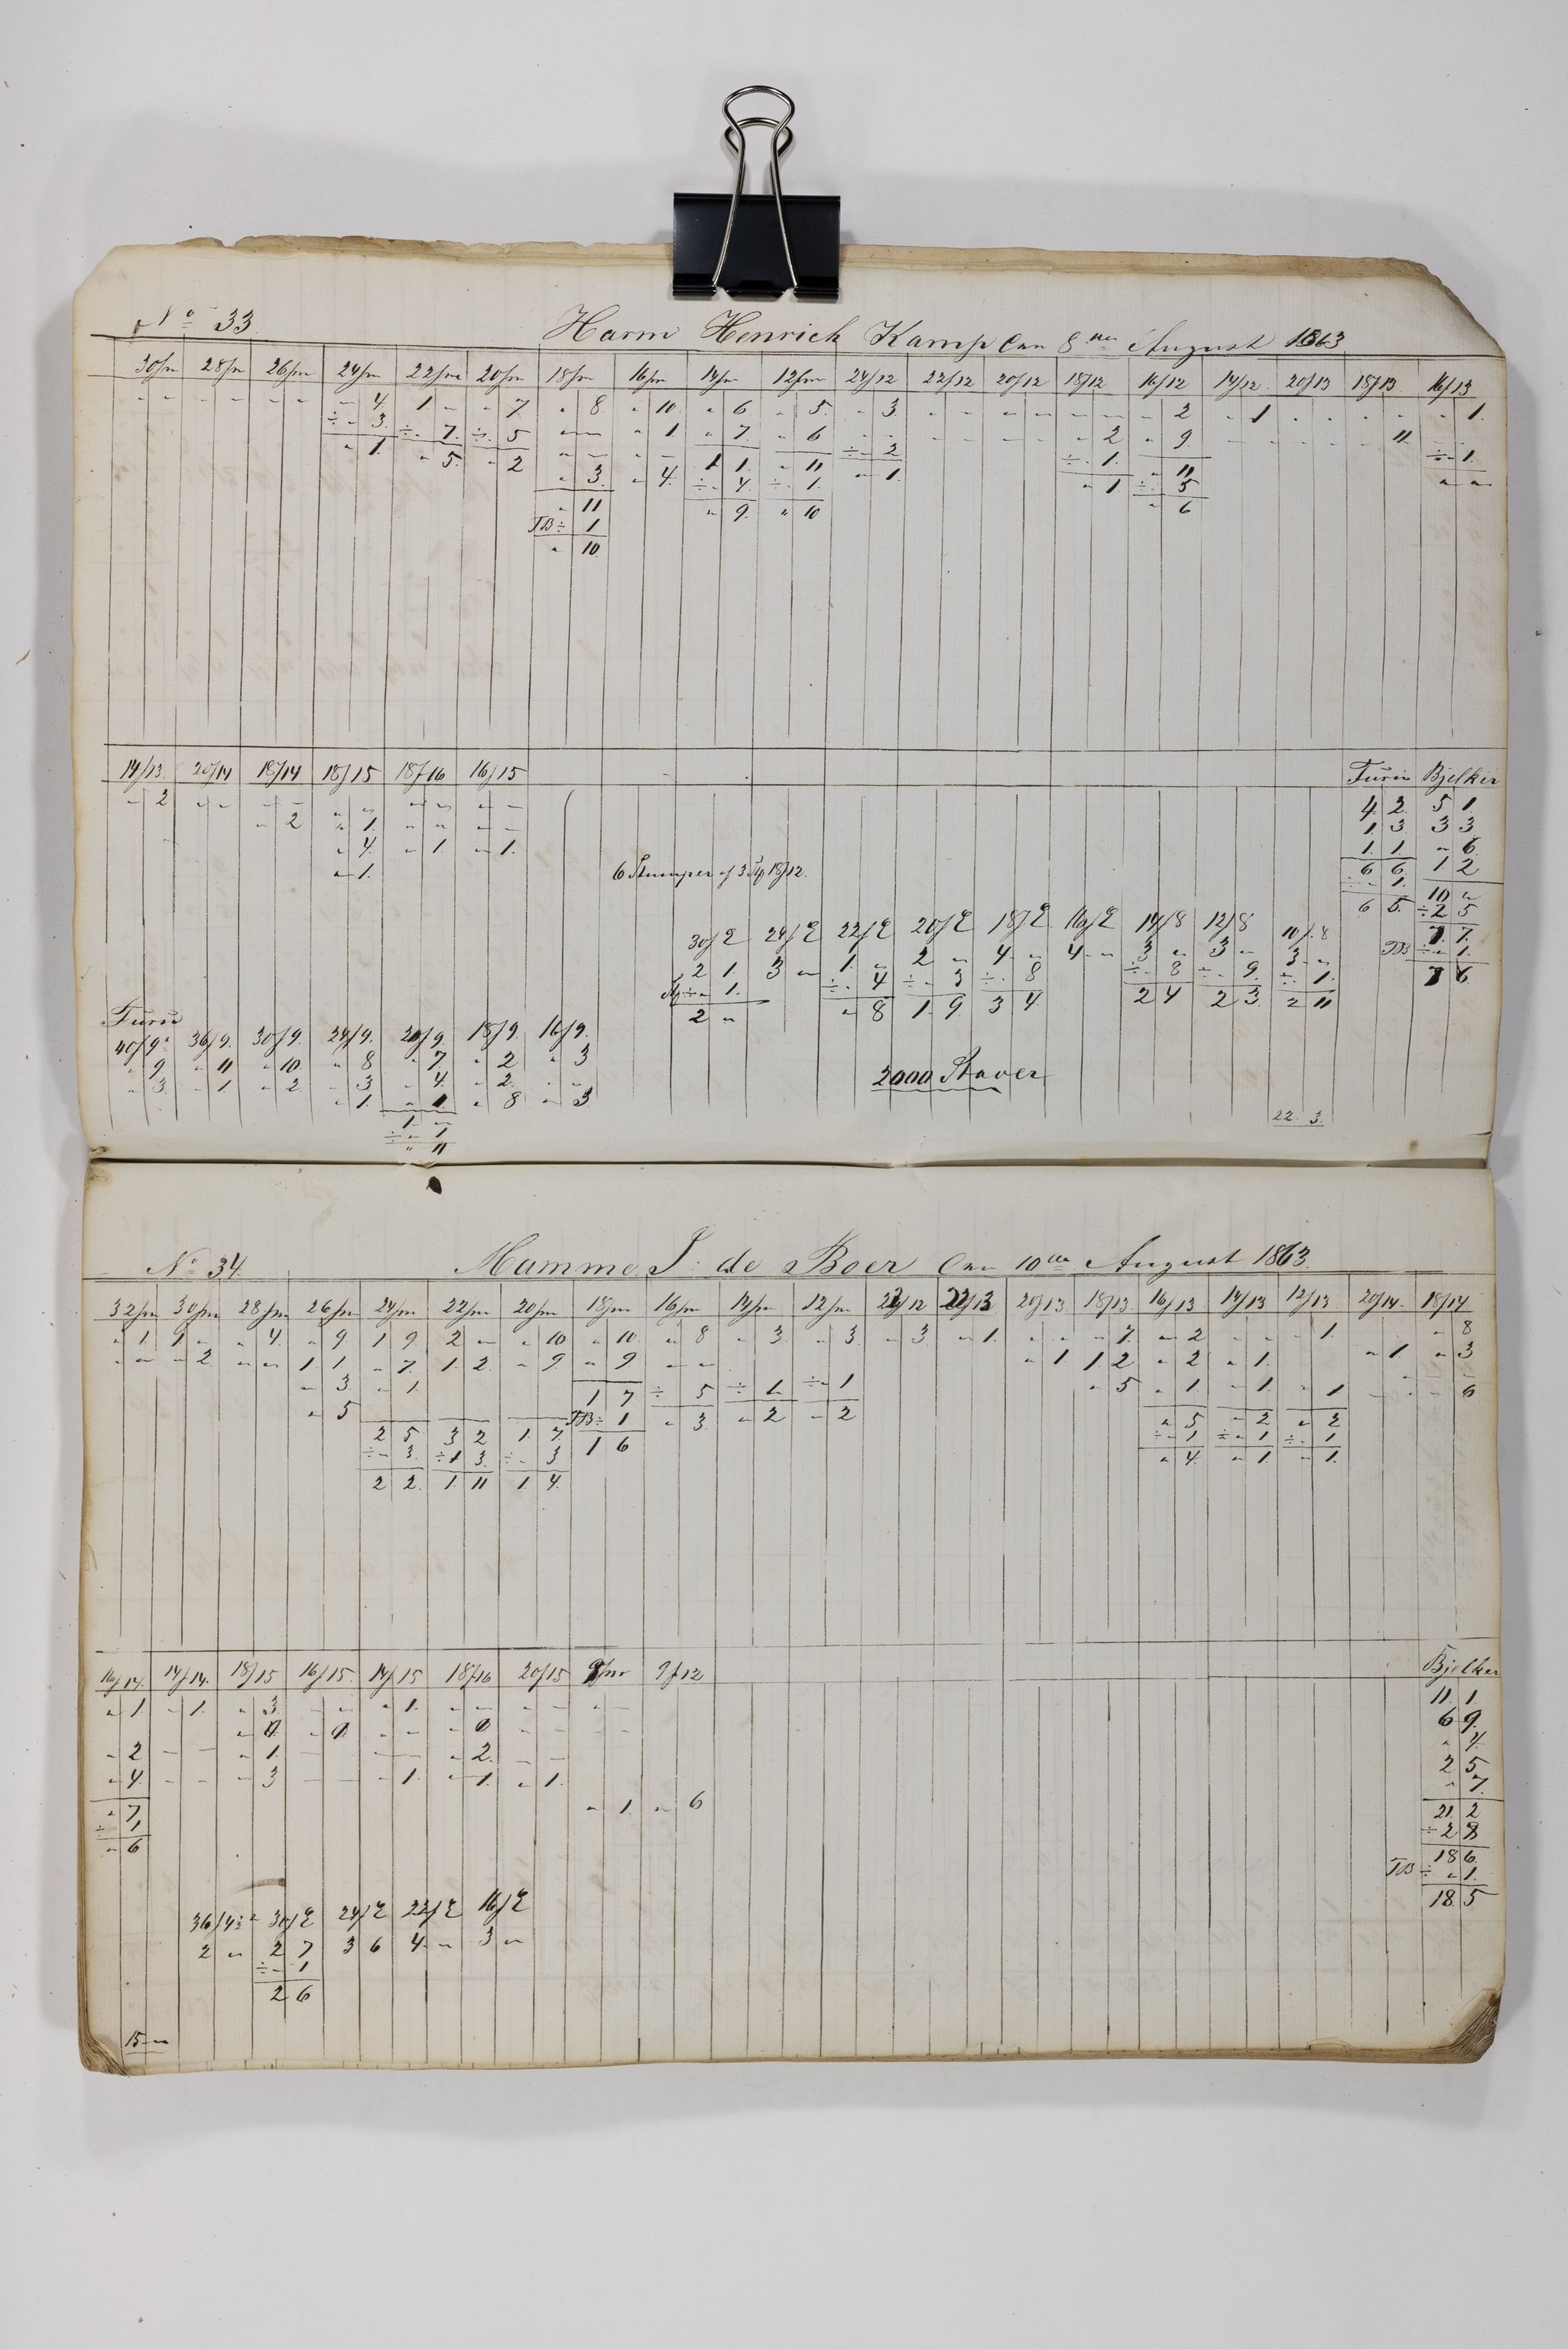 No 33 Harm Henrich Kamp Den 8de August 1863
30/m 28/m 26/m 24/m 22/m 20/m 18/m 16/m 14/m 12/m 24/12 22/12 20/12 18/12 16/12 14/12 20/13 18/13 16/13
" " " " " " " 4 1 " " 7 " 8 " 10 " 6 " 5 " 3 " " " " " " " 2 " 1 " " " " " 1
÷ " 3 ÷ " 7 ÷ " 5 " " " 1 " 7 " 6 " " " " " " " 2 " 9 " " " " " 11 " "
" 1 " 5 " 2 " " " " 1 1 " 11 ÷ " 2 ÷ " 1 " 11 ÷ " 1
" 3 " 4 ÷ " 4 ÷ " 1 " 1 " 1 ÷ " 5 " "
" 11 " 9 " 10 " 6
TB ÷ 1
" 10
14/13 20/14 18/14 18/15 18/16 16/15 Furu Bjelker
" 2 " " " " " " " " " " 4 2 5 1
" 2 " 1 " " " " 1 3 3 3
" 4 " 1 " 1 1 1 " 6
" 1 6 Stumper af 3 18/12 6 6 1 2
÷ " 1 10 "
6 5 ÷ 2 5
30/ 24/ 22/ 20/ 18/ 16/ 14/8 12/8 10/8 7 7
2 1 3 " 1 " 2 " 4 " 4 " 3 " 3 " 3 " TB ÷ " 1
÷ " 1 ÷ " 4 ÷ " 3 ÷ " 8 ÷ " 8 ÷ " 9 ÷ " 1 7 6
2 " " 8 1 9 3 4 2 4 2 3 2 11
Furu
40/9 36/9 30/9 24/9 20/9 18/9 16/9
" 9 " 11 " 10 " 8 " 7 " 2 " 3
" 3 " 1 " 2 " 3 " 4 " 2 " "
" 1 " 1 " 8 " 3
2000 Staver
1 "
÷ " 1
" 11
22 3
No 34 Mamme J. de Boer Den 10de August 1863
32/m 30/m 28/m 26/m 24/m 22/m 20/m 18/m 16/m 14/m 12/m 22/12 22/13 20/13 18/13 16/13 14/13 12/13 20/14 18/14
" 1 1 " " 4 " 9 1 9 2 " " 10 " 10 " 8 " 3 " 3 " 3 " 1 " " " 7 " 2 " " " 1 " 8
" " " 2 " " 1 1 " 7 1 2 " 9 " 9 " " " 1 1 2 " 2 " 1 " 1 " 3
" 3 " 1 1 7 ÷ 5 ÷ " 1 ÷ " 1 " 5 " 1 " 1 " 1 " " " 6
" 5 TB ÷ 1 " 3 " 2 " 2 " 5 " 2 " 2
2 5 3 2 1 7 1 6 ÷ " 1 ÷ " 1 ÷ " 1
÷ " 3 ÷ 1 3 ÷ " 3 " 4 " 1 " 1
2 2 1 11 1 4
16/14 14/14 18/15 16/15 14/15 18/16 20/15 9/m 9/12 Bjelker
" 1 " 1 " 3 " " " 1 " " " " " " 11 1
6 9
" 2 " " " 1 " " " " " 2 " " " 4
" 4 " " " 3 " " " 1 " 1 " 1 2 5
" 7
" 7 " 1 " 6 21 2
÷ 1 ÷ 2 8
" 6 18 6
TB ÷ " 1
18 5
30/ 24/ 22/ 16/
2 " 2 7 3 6 4 " 3 "
÷ " 1
2 6
15 "